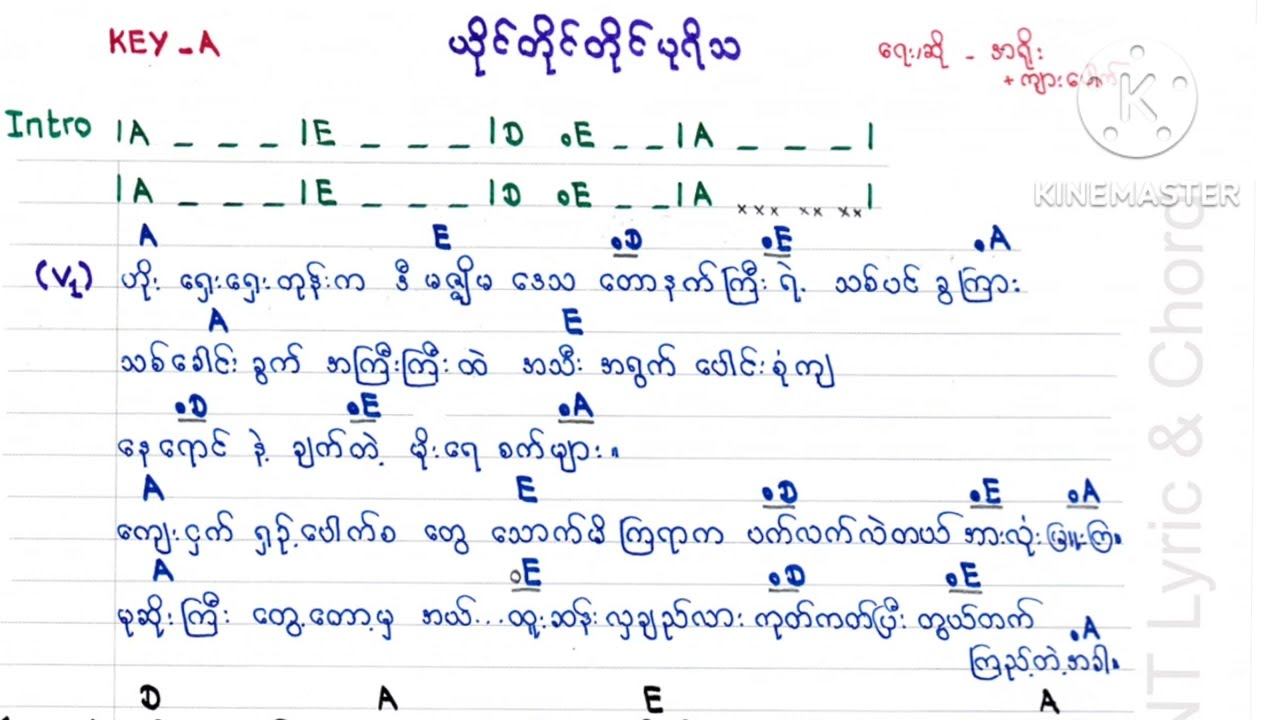 KEY - A
ယိုင်တိုင်တိုင်ပုရိသ
ရေး/ဆို - အရိုး
+ ကျားပေါက်
K
KINEMASTER
Intro |A _ _ _ |E _ _ _ |D .E _ _ |A _ _ _ |
|A _ _ _ |E _ _ _ |D .E _ _ |A xxx xx xx |
A E .D .E .A
(V1) ဟိုး ရှေးရှေးတုန်းက ဒီ မဇ္ဈိမ ဒေသ တောနက်ကြီး ရဲ့ သစ်ပင် ခွကြား
A E
သစ်ခေါင်း ခွက် အကြီးကြီးထဲ အသီး အရွက် ပေါင်းစုံကျ
.D .E .A
နေရောင် နဲ့ ချက်တဲ့ မိုးရေ စက်များ။
A E .D .E .A
ကျေးငှက် ရှဉ့်ပေါက်စ တွေ သောက်မိ ကြရာက ပက်လက်လဲတယ် အားလုံး မြူးကြ။
A .E .D .E
မုဆိုးကြီး တွေ့တော့မှ အယ်... ထူးဆန်းလှချည်လား ကုတ်ကတ်ပြီး တွယ်တက်
.A
ကြည့်တဲ့အခါ။
D A E A
NT Lyric & Chord